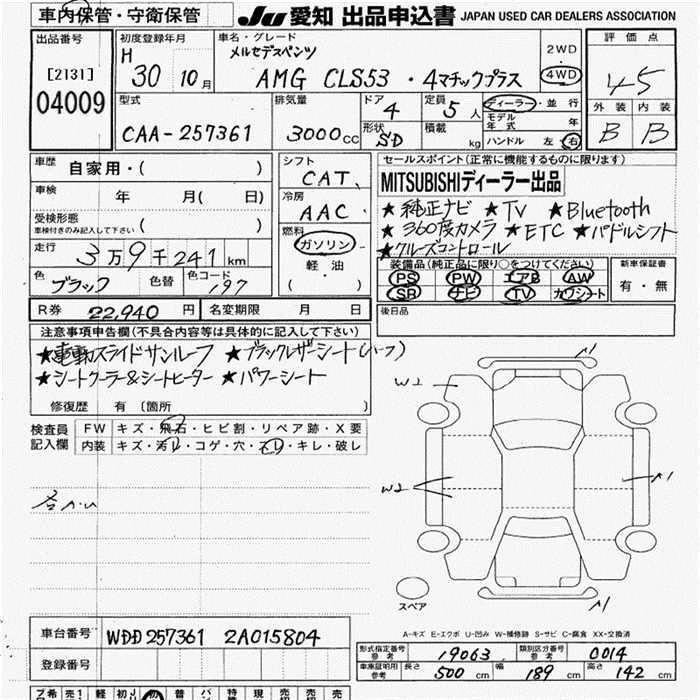 車内保管・守衛保管
JU 愛知 出品申込書 JAPAN USED CAR DEALERS ASSOCIATION
出品番号
[2131]
04009
初度登録年月
H 30 10月
車名・グレード
メルセデスベンツ
AMG CLS53 ・4マチックプラス
2WD
4WD
評価点
4.5
外装 内装
B B
型式
CAA-257361
排気量
3000cc
ドア
4
形状
SD
定員
5人
積載
kg
ディーラー・並行
モデル年式
年
ハンドル 左 右
車歴
自家用・( )
車検
年 月( 日)
受検形態
(車検付きのみ記入して下さい)
走行
3万9千241km
色
ブラック
色替
色コード
197
シフト
CAT.
冷房
AAC
燃料
ガソリン
軽油
( )
セールスポイント(正常に機能するものに限ります)
MITSUBISHIディーラー出品
★純正ナビ ★TV ★Bluetooth
★360度カメラ ★ETC ★パドルシフト
★クルーズコントロール
装備品(純正品に限り○をつけてください)
PS PW エアB AW
SR ナビ TV カワシート
新車保証書
有・無
R券
22,940円
名変期限 月 日
後日品
注意事項申告欄(不具合内容等は具体的に記入して下さい)
★電動スライドサンルーフ ★ブラックレザーシート(ハーフ)
★シートクーラー&シートヒーター ★パワーシート
修復歴 有 〔箇所 〕
検査員記入欄
FW キズ・飛石・ヒビ割・リペア跡・X要
内装 キズ・汚レ・コゲ・穴・スレ・キレ・破レ
A1
W2
W2
A1
A1
スペア
A-キズ E-エクボ U-凹み W-補修跡 S-サビ C-腐食 XX-交換済
車台番号
WDD257361 2A015804
登録番号
形式指定番号
参考
19063
類別区分番号
参考
0014
車庫証明用
参考
長さ 500cm 幅 189cm 高さ 142cm